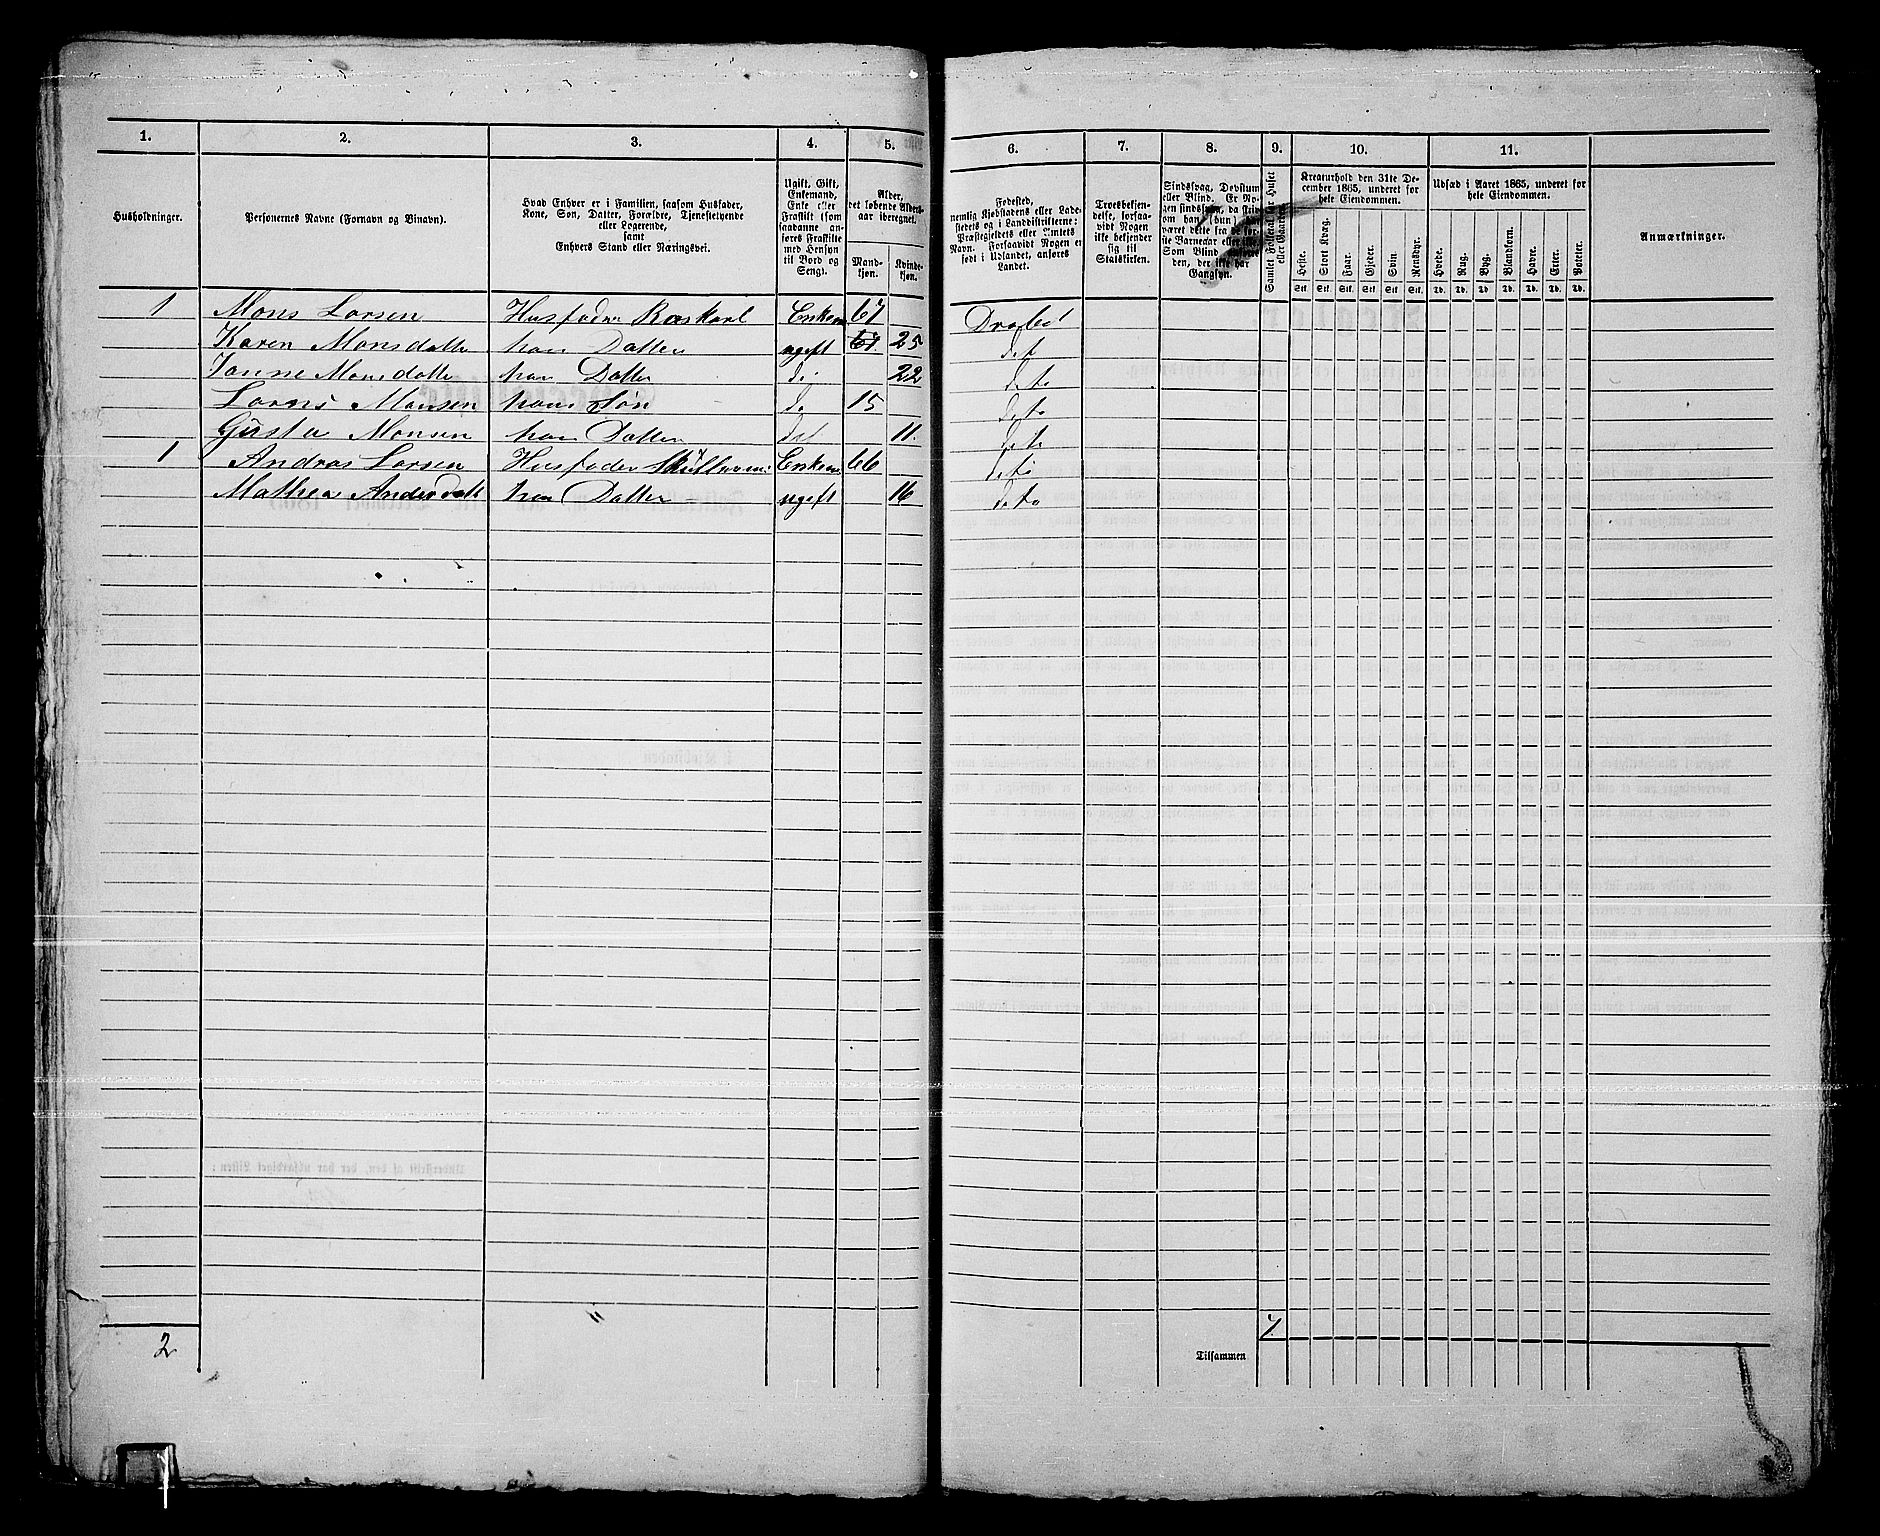 1. 2. 3. 4. 5. 6. 7. 8. 9. 10. 11.
Husholdninger.
Personernes Navne (Fornavn og Binavn).
Hvad Enhver er i Familien, saasom Husfader,
Kone, Søn, Datter, Forældre, Tjenestetyende
eller Logerende,
samt
Enhvers Stand eller Næringsvei.
Ugift, Gift,
Enkemand,
Enke eller
Fraskilt (som
saadanne an-
føres Fraskilte
med Hensyn
til Bord og
Seng).
Alder,
det løbende Alders-
aar iberegnet.
Mand-
kjøn.
Kvinde-
kjøn.
Fødested,
nemlig Kjøbstadens eller Lade-
stedets og i Landdistrikterne:
Præstegjeldets eller Amtets
Navn. Forsaavidt Nogen er
født i Udlandet, anføres
Landet.
Troesbekjen-
delse, forsaa-
vidt Nogen
ikke bekjender
sig til
Statskirken.
Sindssvag, Døvstum
eller Blind. Er No-
gen sindssvag, da
om han (hun) har
været dette fra
Barneaar eller
Som Blind anføres
den, der ikke har
Gangsyn.
Samlet Folketal for Huset
eller Gaarden.
Kreaturhold den 31te De-
cember 1865, underet for
hele Eiendommen.
Heste. Stort Kvæg. Faar. Gjeder. Svin. Rensdyr.
Stk. Stk. Stk. Stk. Stk. Stk.
Udsæd i Aaret 1865, underet for
hele Eiendommen.
Hvede. Rug. Byg. Blandkorn. Havre. Erter. Poteter.
Td. Td. Td. Td. Td. Td. Td.
Anmærkninger.
1 Mons Larsen Husfader Enkem 67
Karen Monsdatter hans Datter ugift 25
Monsdatter hans Datter do 22 deto
Monsen hans Søn do 15 deto
Gusta Monsen hans Datter 11.
1 Andras Larsen Husfader Enkem 66 deto
Mathea hans Datter ugift 16 deto
2 Tilsammen 7